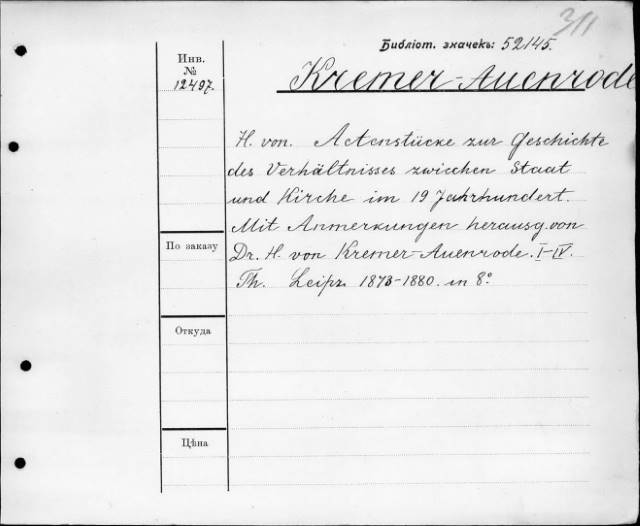 311
Библіот. значекъ: 52145.
Инв.
№
12497.
Kremer-Auenrode
H. von. Actenstücke zur Geschichte
des Verhältnisses zwischen Staat
und Kirche im 19 Jahrhundert.
Mit Anmerkungen herausg. von
Dr. H. von Kremer-Auenrode. I-IV.
Th. Leipz. 1873-1880. in 8°
По заказу
Откуда
Цѣна